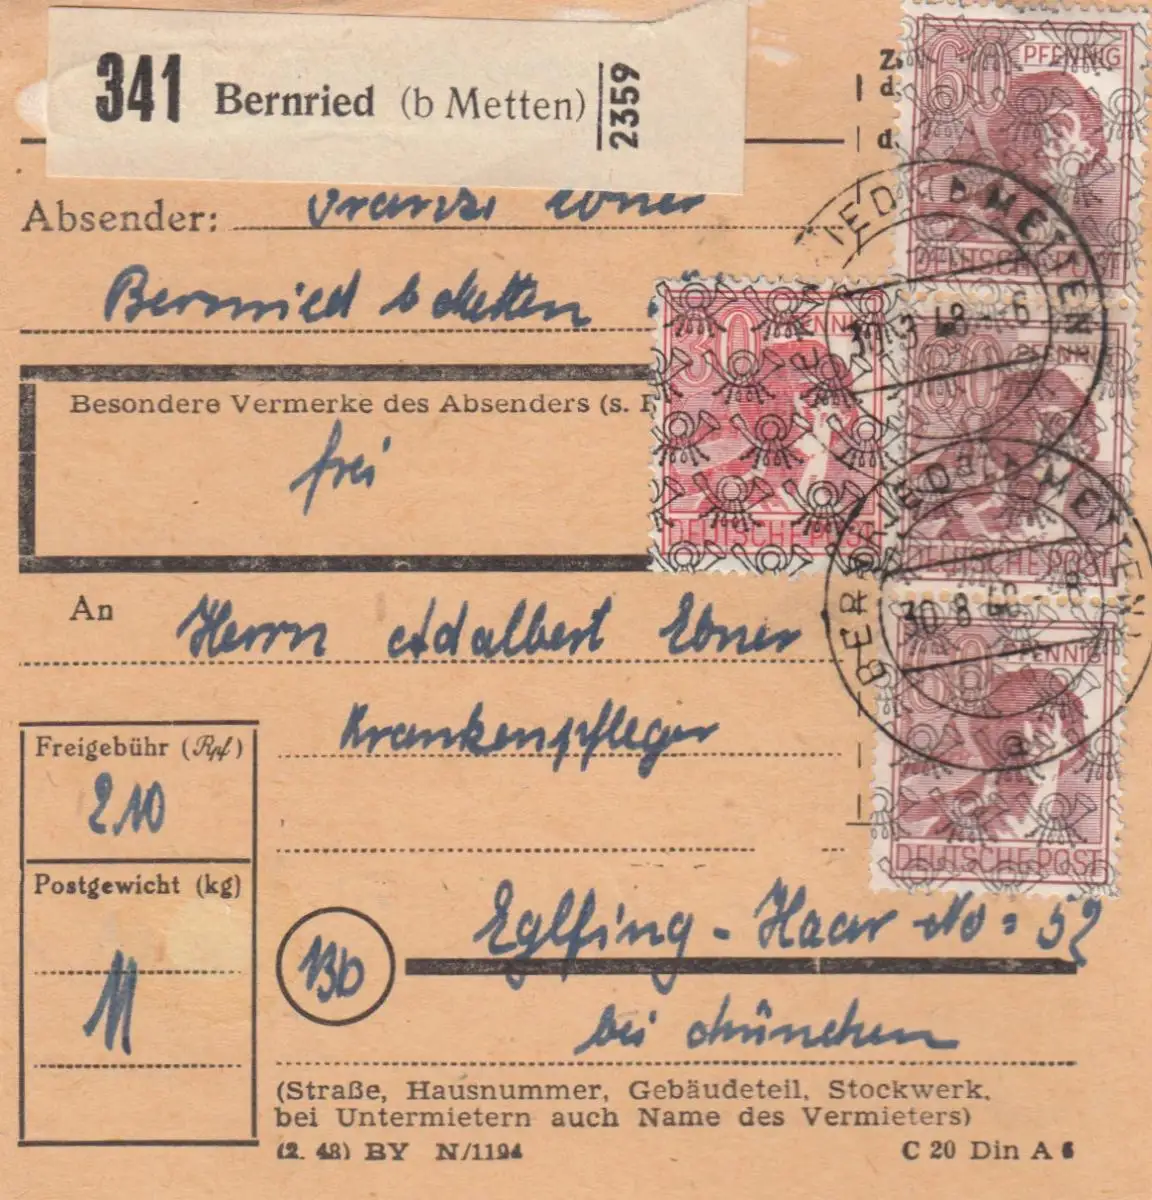 341 Bernried (b Metten) 2359
Z.
d.
d.
Absender: Ebner
Bernried b Metten
Besondere Vermerke des Absenders (s.
frei
An Herrn Adalbert Ebner
Krankenpfleger
Freigebühr (Rpf)
210
Postgewicht (kg)
11
Eglfing - Haar No = 52
13b
bei München
(Straße, Hausnummer, Gebäudeteil, Stockwerk,
bei Untermietern auch Name des Vermieters)
(2. 48) BY N/1194 C 20 Din A 6
60 PFENNIG
DEUTSCHE POST
30 PFENNIG
DEUTSCHE POST
60 PFENNIG
DEUTSCHE POST
60 PFENNIG
DEUTSCHE POST
BERNRIED B METTEN
30.8.48 - 8
a